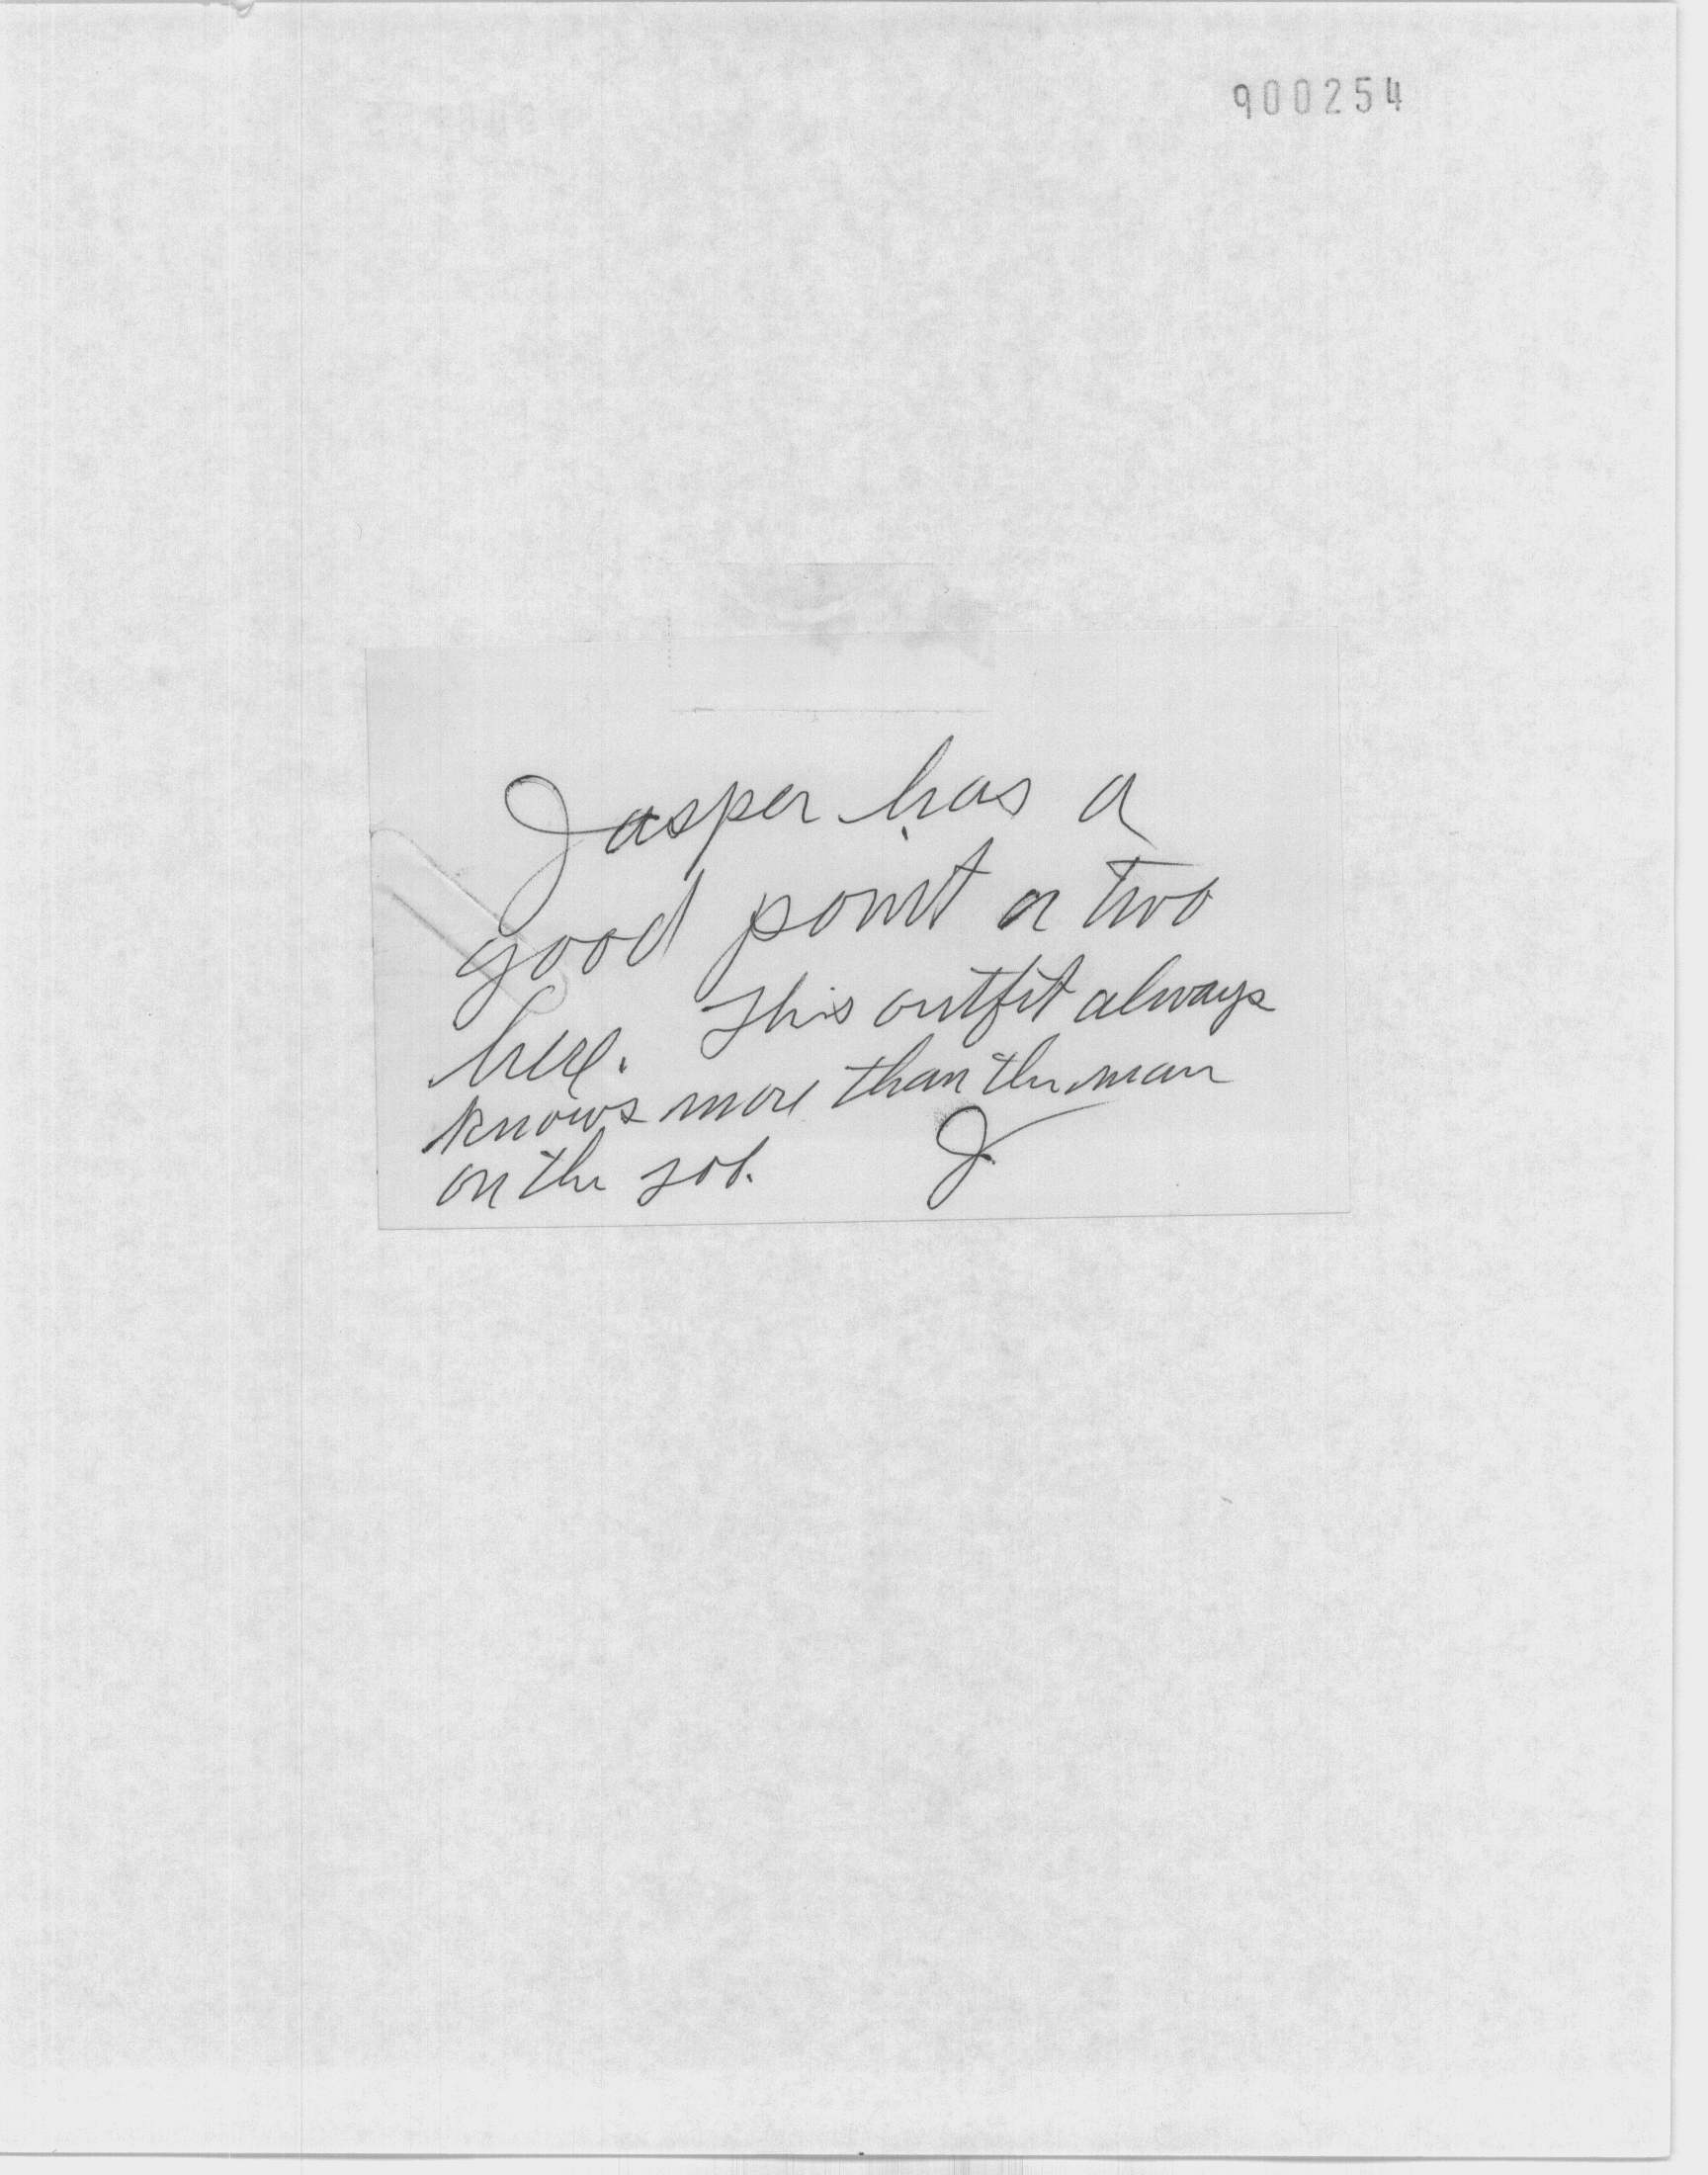 900254
Jasper has a
good point or two
here. This outfit always
knows more than the man
on the job. J